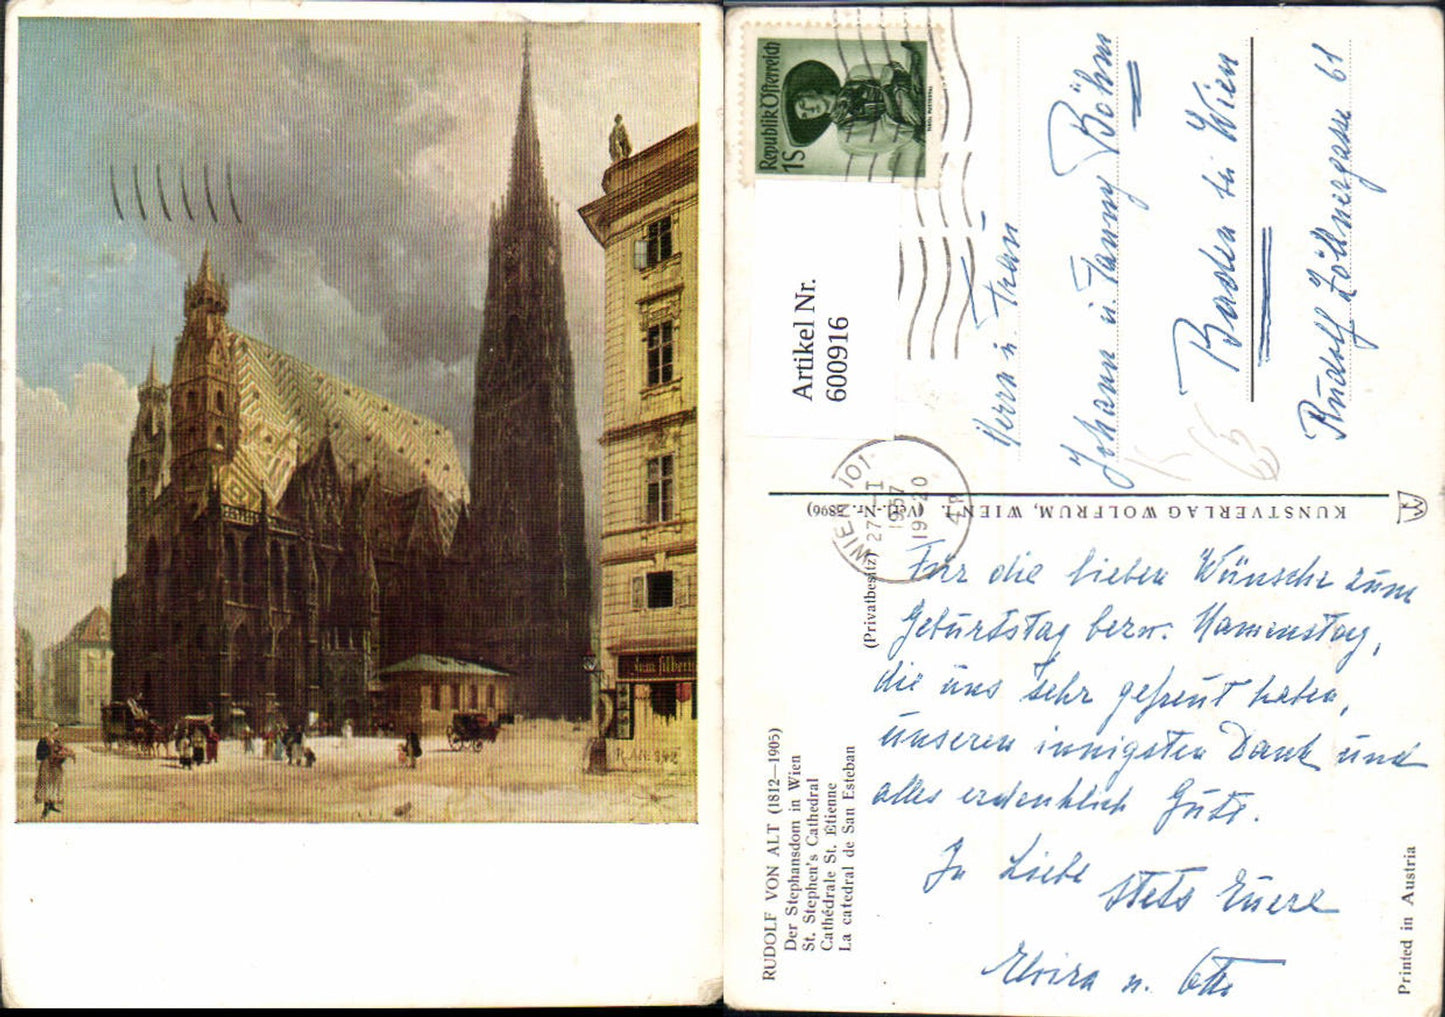 Zum silbern
R. Alt 842
Republik Österreich
1S
Artikel Nr.
600916
WIEN 101
27.-I
1957
19 20
4P
Herrn u. Frau
Johann u. Fanny Böhm
Baden bei Wien
Rudolf Zöllnergasse 61
KUNSTVERLAG WOLFRUM, WIEN I. (Verl.-Nr. 896)
(Privatbesitz)
Für die lieben Wünsche zum
Geburtstag bezw. Namenstag,
die uns sehr gefreut haben,
unseren innigsten Dank und
alles erdenklich Gute.
In Liebe
stets Euere
Elvira u. Otto
RUDOLF VON ALT (1812—1905)
Der Stephansdom in Wien
St. Stephen's Cathedral
Cathédrale St. Étienne
La catedral de San Esteban
Printed in Austria